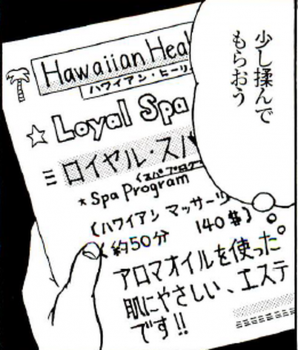 少し揉んで
もらおう
Hawaiian Heal
ハワイアン・ヒーリ
★ Loyal Spa
ロイヤル・スパ
(スパプログラ
*Spa Program
(ハワイアン マッサージ
(約50分 140$)
アロマオイルを使った
肌にやさしい、エステ
です!!